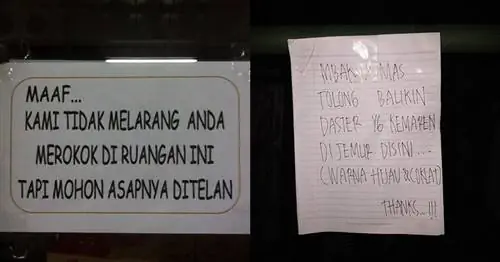 MAAF...
KAMI TIDAK MELARANG ANDA
MEROKOK DI RUANGAN INI
TAPI MOHON ASAPNYA DITELAN
MBAK MAS
TOLONG BALIKIN
DASTER YG KEMAREN
DI JEMUR DISINI....
(WARNA HIJAU & COKLAT)
THANKS...!!!